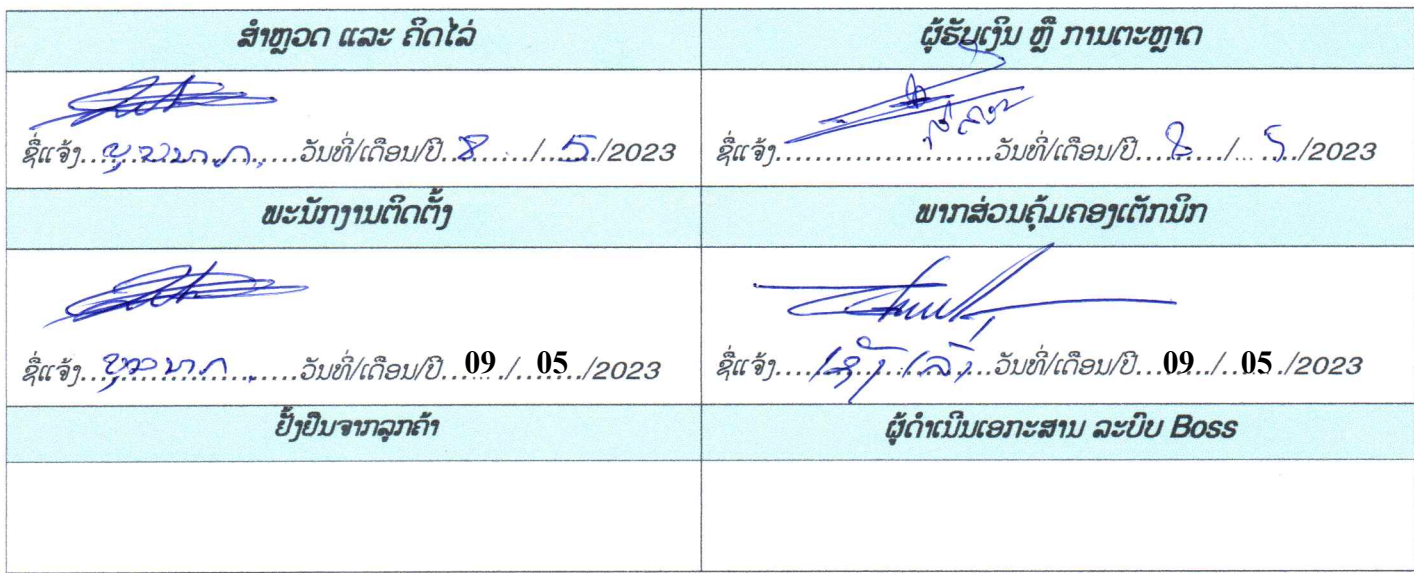 ສຳຫຼວດ ແລະ ຄິດໄລ່
ຜູ້ຮັບເງິນ ຫຼື ການຕະຫຼາດ
ຊື່ແຈ້ງ........ວັນທີ່/ເດືອນ/ປີ..8....../...5./2023
ຊື່ແຈ້ງ........................ວັນທີ່/ເດືອນ/ປີ....8..../....5../2023
ພະນັກງານຕິດຕັ້ງ
ພາກສ່ວນຄຸ້ມຄອງເຕັກນິກ
ຊື່ແຈ້ງ........ວັນທີ່/ເດືອນ/ປີ...09.../...05..../2023
ຊື່ແຈ້ງ........ວັນທີ່/ເດືອນ/ປີ...09.../...05./2023
ຢັ້ງຢືນຈາກລູກຄ້າ
ຜູ້ດຳເນີນເອກະສານ ລະບົບ Boss